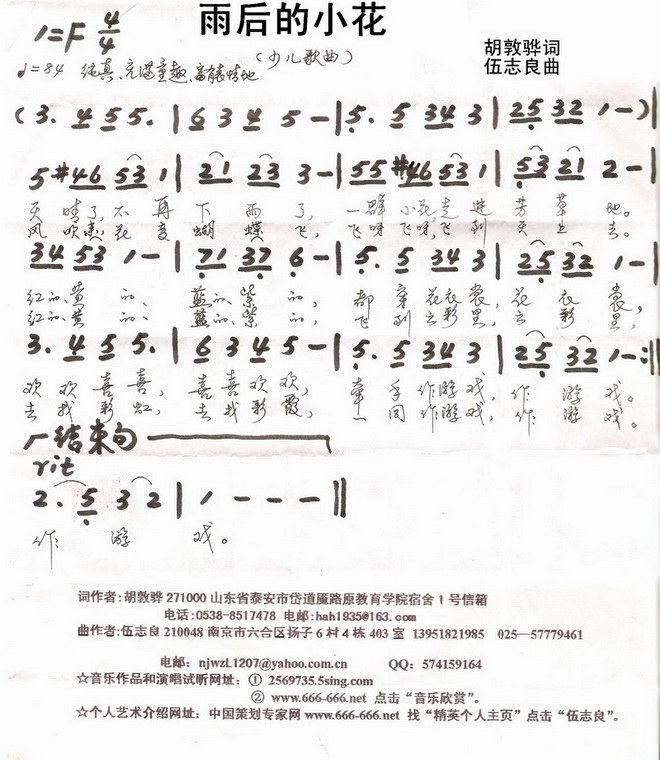 雨后的小花
1=F 4/4
(少儿歌曲)
胡敦骅词
伍志良曲
♩=84 纯真、充满童趣、富表情地
(3. 4 5 5. | 6 3 4 5 - | 5. 5 34 3 | 25 32 1 -)|
5 #46 53 1 | 21 23 3 - | 55 #46 53 1 | 53 21 2 -|
天晴了,不再下雨了,一群小花走进芳草地。
风吹来,花变蝴蝶飞,飞呀飞呀,飞到天上去。
34 53 1 - | 71 37 6 - | 5. 5 34 3 | 25 32 1 -|
红的、黄的、蓝的、紫的,都穿花衣裳,花衣裳,
红的、黄的、蓝的、紫的,飞到云彩里,云彩里,
3. 4 5 5. | 6 3 4 5 - | 5. 5 34 3 | 25 32 1 -:||
欢欢喜喜,喜喜欢欢,牵手作游戏,作游戏。
去找彩虹,去找彩霞,一同作游戏,作游戏。
结束句
rit
2. 5 3 2 | 1 - - - ||
作游戏。
词作者:胡敦骅 271000 山东省泰安市岱道庵路原教育学院宿舍 1 号信箱
电话:0538-8517478 电邮:hah1935@163.com
曲作者:伍志良 210048 南京市六合区扬子 6 村 4 栋 403 室 13951821985 025—57779461
电邮:njwzL1207@yahoo.com.cn QQ:574159164
☆音乐作品和演唱试听网址:① 2569735.5sing.com
② www.666-666.net 点击“音乐欣赏”。
☆个人艺术介绍网址:中国策划专家网 www.666-666.net 找“精英个人主页”点击“伍志良”。